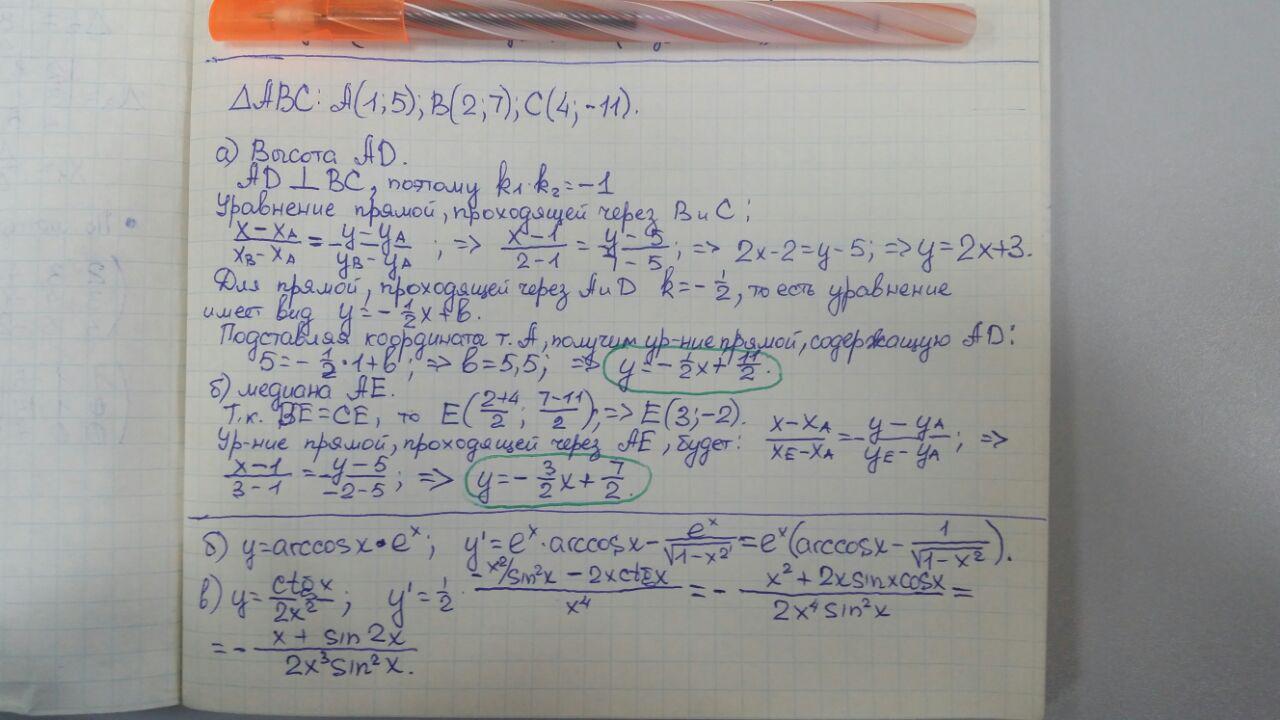 ΔABC: A(1;5); B(2;7); C(4;-11).
а) Высота AD.
AD ⊥ BC, поэтому k₁·k₂=-1
Уравнение прямой, проходящей через B и C;
(x-x_A)/(x_B-x_A) = (y-y_A)/(y_B-y_A) ; => (x-1)/(2-1) = (y-5)/(7-5); => 2x-2=y-5; => y=2x+3.
Для прямой, проходящей через A и D k=-1/2, то есть уравнение
имеет вид y=-1/2x+b.
Подставляя координата т. A, получим ур-ние прямой, содержащую AD:
5=-1/2·1+b; => b=5,5; => y=-1/2x+11/2.
б) медиана AE.
Т.к. BE=CE, то E((2+4)/2; (7-11)/2); => E(3;-2).
Ур-ние прямой, проходящей через AE, будет: (x-x_A)/(x_E-x_A) = (y-y_A)/(y_E-y_A); =>
(x-1)/(3-1) = (y-5)/(-2-5); => y=-3/2x+7/2.
б) y=arccosx·eˣ; y'=eˣ·arccosx-eˣ/√(1-x²)=eˣ(arccosx-1/√(1-x²)).
в) y=ctgx/2x²; y'=1/2·(-x²/sin²x-2xctgx)/x⁴=-(x²+2xsinxcosx)/(2x⁴sin²x)=
=-(x+sin2x)/(2x³sin²x).